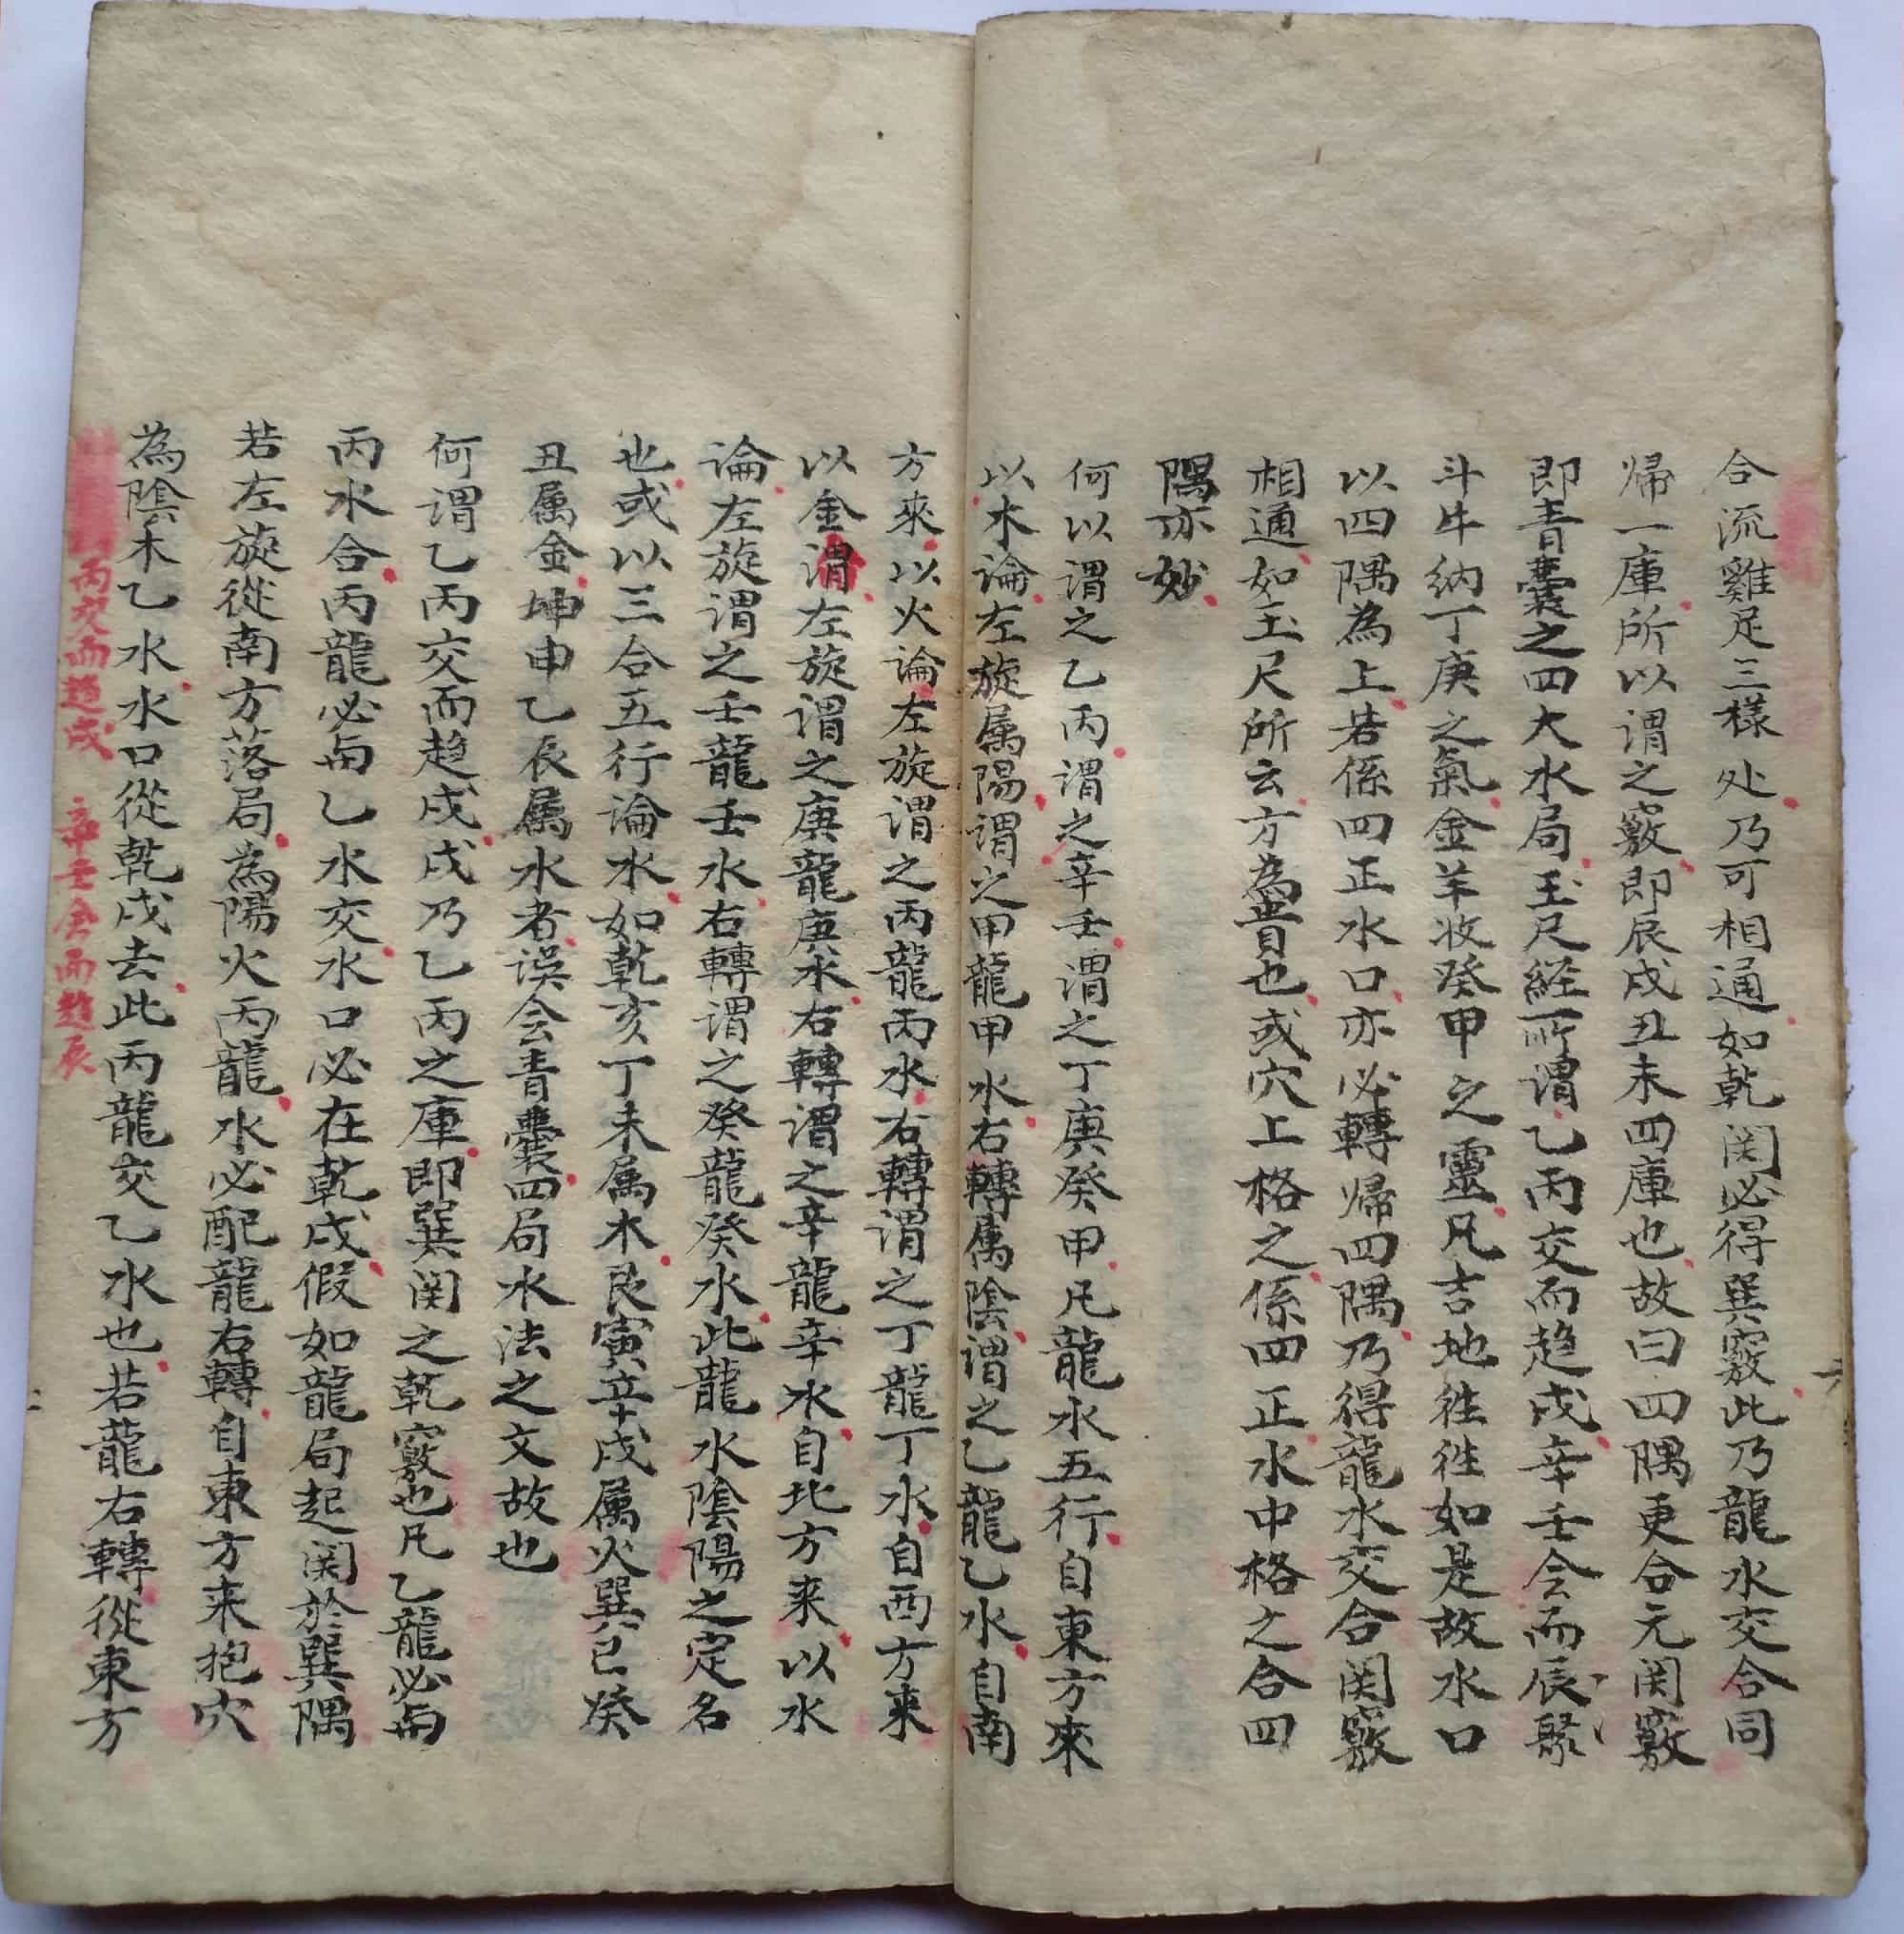 合流雞足三樣处乃可相通如乾関必得巽竅此乃龍水交合同
帰一庫所以谓之竅即辰戌丑未四庫也故曰四隅更合元関竅
即青囊之四大水局玉尺経所谓乙丙交而趋戌辛壬会而辰聚
斗牛納丁庚之氣金羊收癸甲之靈凡吉地往往如是故水口
以四隅為上若係四正水口亦必轉帰四隅乃得龍水交合関竅
相通如玉尺所云方為貴也或穴上格之係四正水中格之合四
隅亦妙
何以谓之乙丙谓之辛壬谓之丁庚癸甲凡龍水五行自東方來
以木論左旋属陽谓之甲龍甲水右轉属陰谓之乙龍乙水自南
方來以火論左旋谓之丙龍丙水右轉谓之丁龍丁水自西方来
以金谓左旋谓之庚龍庚水右轉谓之辛龍辛水自北方来以水
論左旋谓之壬龍壬水右轉谓之癸龍癸水此龍水陰陽之定名
也或以三合五行論水如乾亥丁未属木艮寅辛戌属火巽巳癸
丑属金坤申乙辰属水者误会青囊四局水法之文故也
何谓乙丙交而趋戌戌乃乙丙之庫即巽関之乾竅也凡乙龍必与
丙水合丙龍必与乙水交水口必在乾戌假如龍局起関於巽隅
若左旋從南方落局為陽火丙龍水必配龍右轉自東方来抱穴
為陰木乙水水口從乾戌去此丙龍交乙水也若龍右轉從東方
丙交而趨戌 辛壬会而趋辰